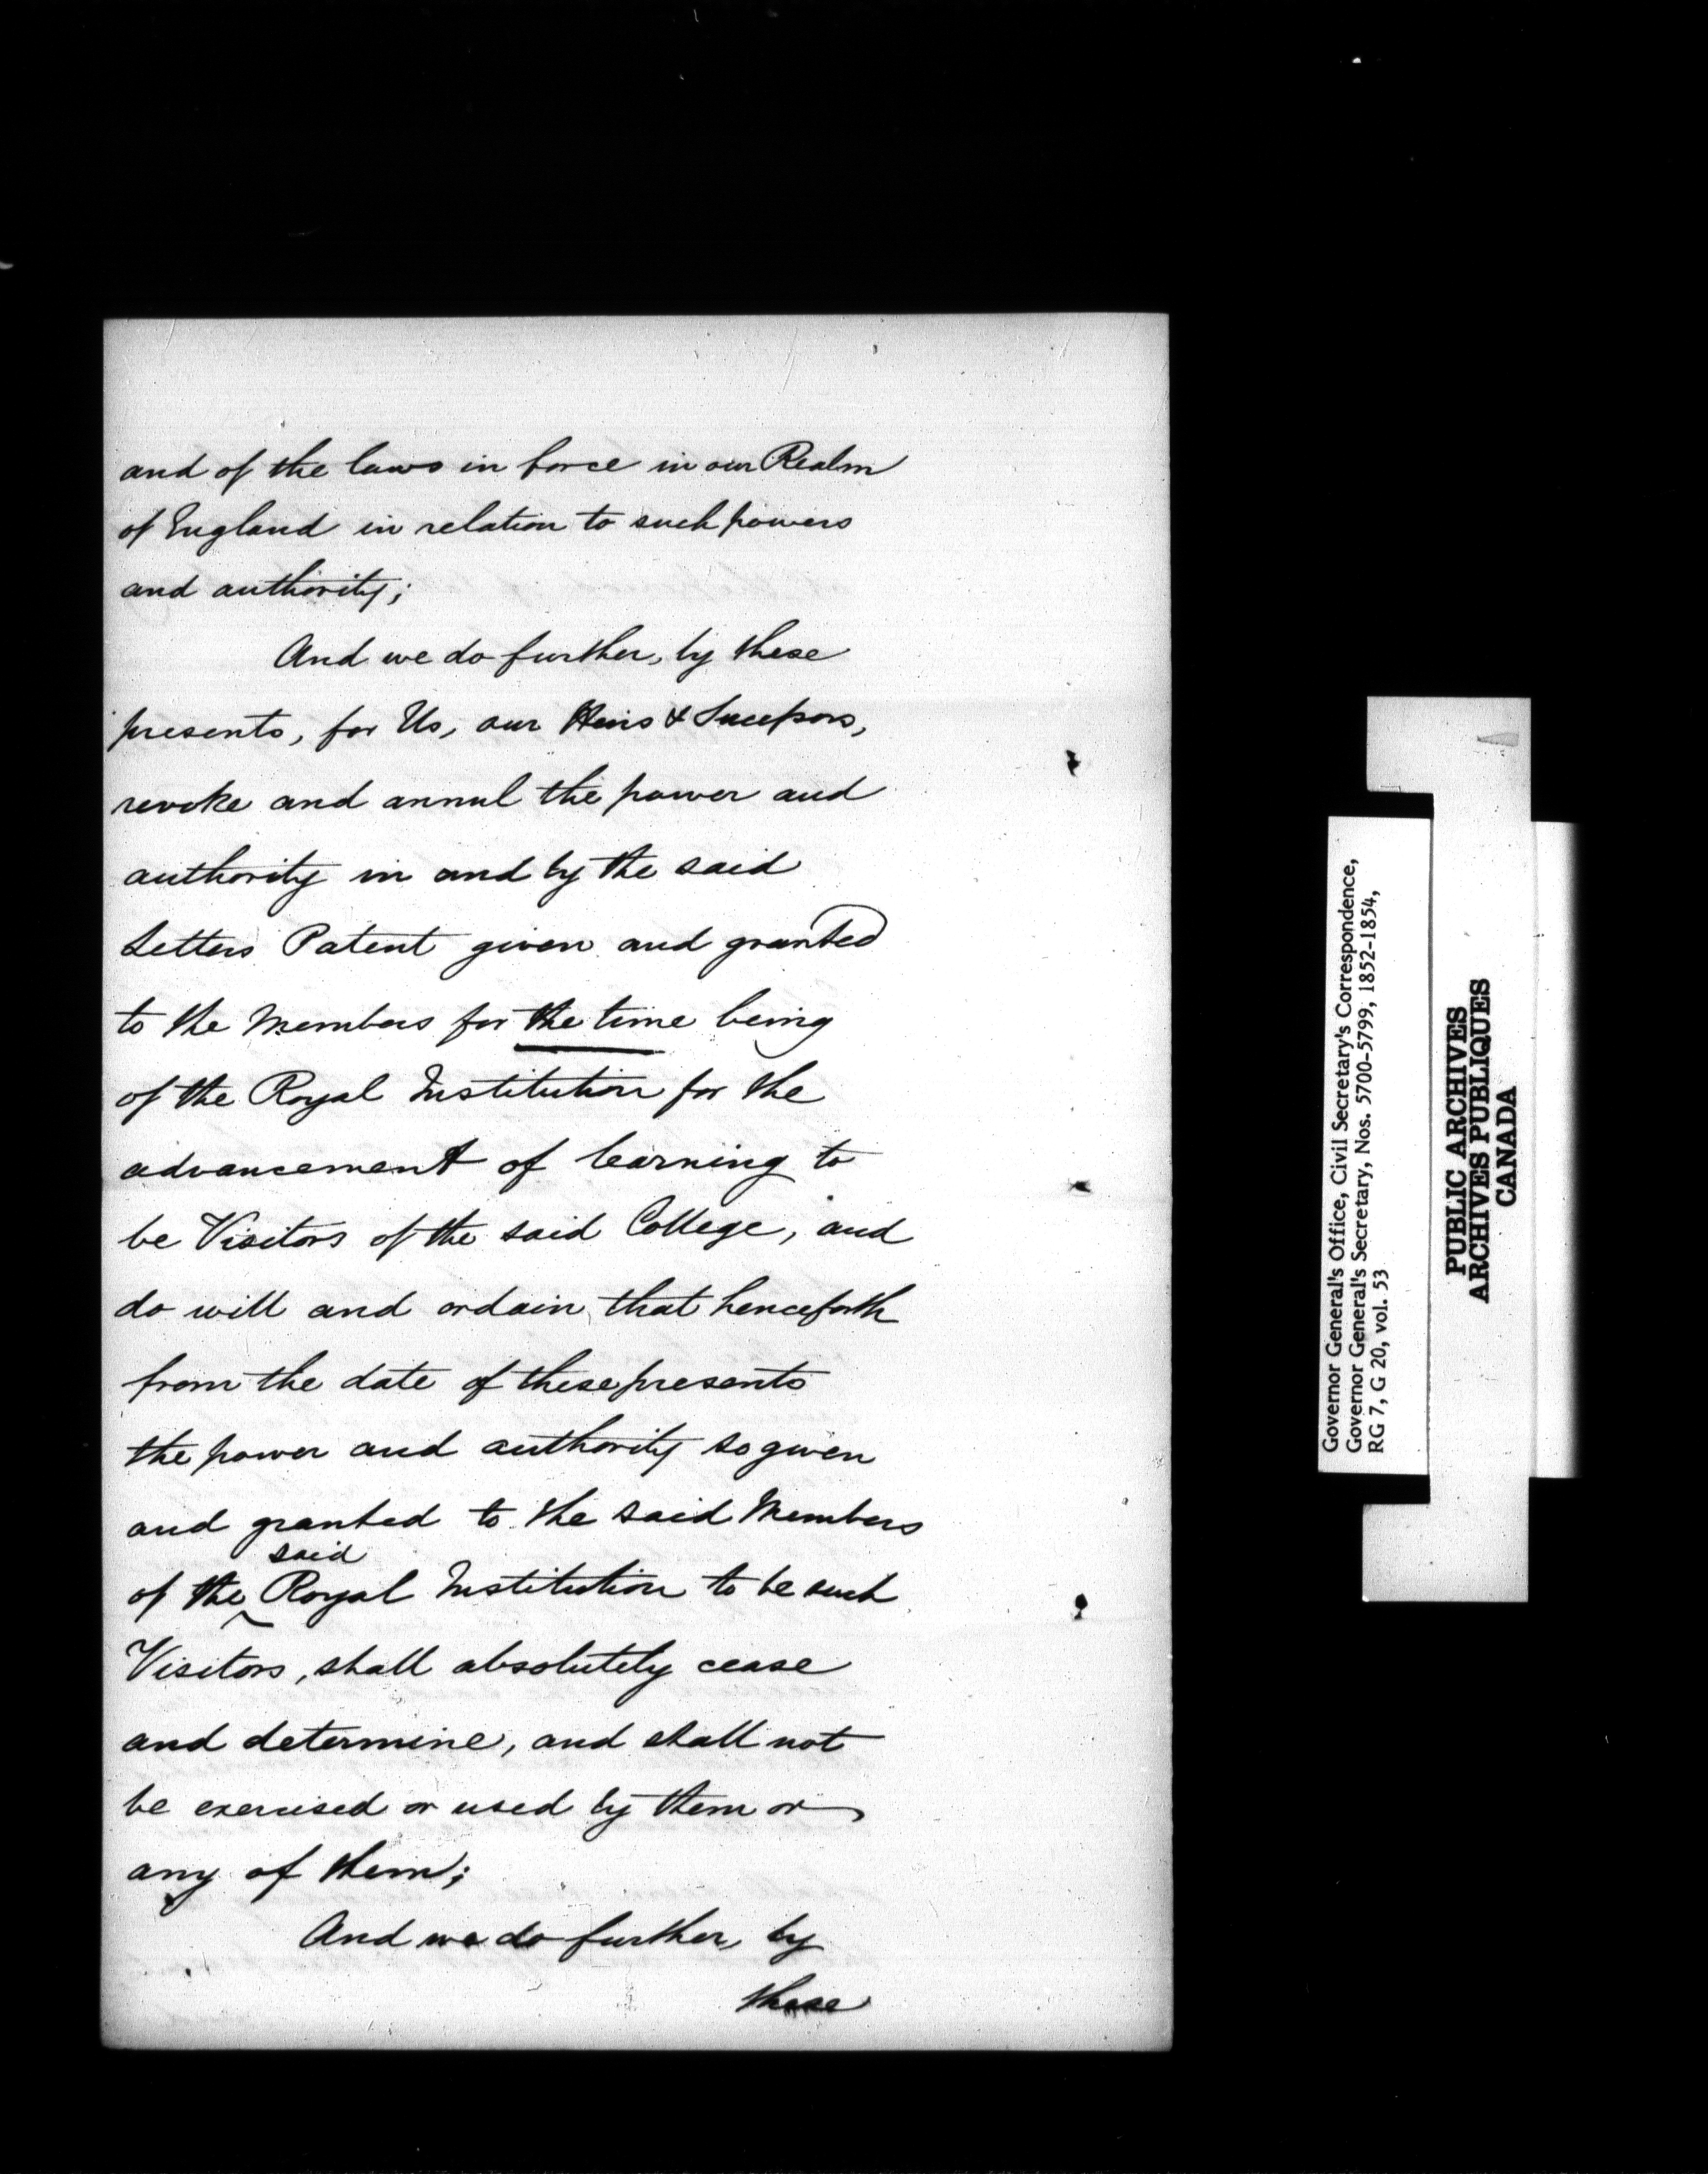 and of the laws in force in our Realm
of England in relation to such powers
and authority;
And we do further, by these
presents, for Us, our Heirs & Successors,
revoke and annul the power and
authority in and by the said
Letters Patent given and granted
to the Members for the time being
of the Royal Institution for the
advancement of learning to
be Visitors of the said College, and
do will and ordain, that henceforth
from the date of these presents
the power and authority so given
and granted to the said Members
said
of the Royal Institution to be such
Visitors, shall absolutely cease
and determine, and shall not
be exercised or used by them or
any of them;
And we do further, by
these
Governor General's Office, Civil Secretary's Correspondence,
Governor General's Secretary, Nos. 5700-5799, 1852-1854,
RG 7, G 20, vol. 53
PUBLIC ARCHIVES
ARCHIVES PUBLIQUES
CANADA